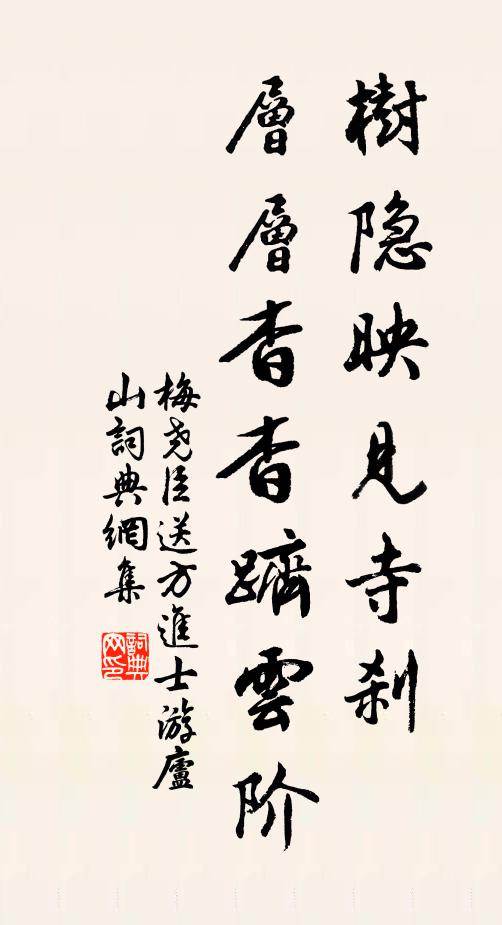 樹隐映見寺刹
層層杳杳躋雲阶
梅尧臣送方進士游廬
山詞典網集
詞典网印